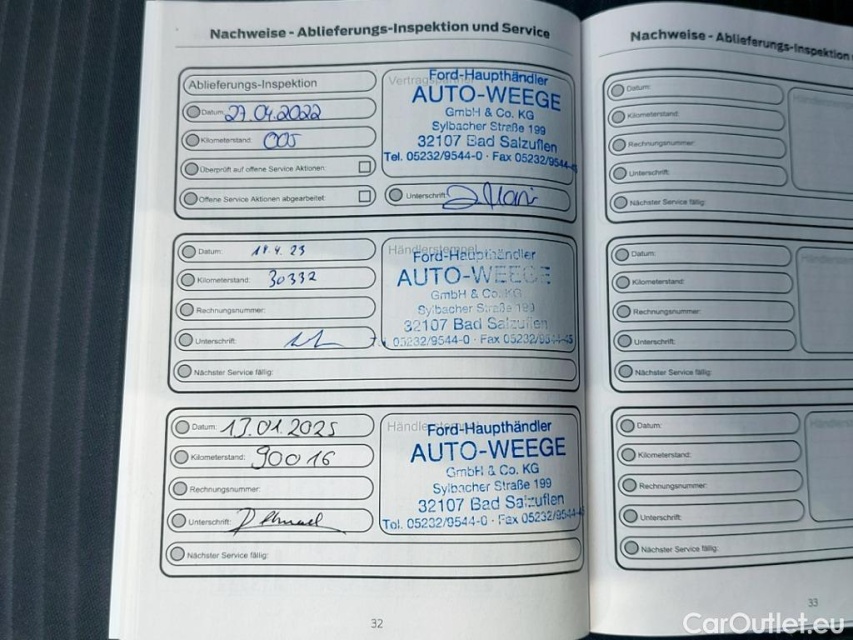 Nachweise - Ablieferungs-Inspektion und Service
Ablieferungs-Inspektion
Datum: 27.04.2022
Kilometerstand: 005
Überprüft auf offene Service Aktionen:
Offene Service Aktionen abgearbeitet:
Vertragspartner
Ford-Haupthändler
AUTO-WEEGE
GmbH & Co. KG
Sylbacher Straße 199
32107 Bad Salzuflen
Tel. 05232/9544-0 · Fax 05232/9544-45
Unterschrift:
Datum: 18.4.23
Kilometerstand: 30332
Rechnungsnummer:
Unterschrift:
Nächster Service fällig:
Händlerstempel
Ford-Haupthändler
AUTO-WEEGE
GmbH & Co. KG
Sylbacher Straße 199
32107 Bad Salzuflen
Tel. 05232/9544-0 · Fax 05232/9544-45
Datum: 13.01.2025
Kilometerstand: 90016
Rechnungsnummer:
Unterschrift:
Nächster Service fällig:
Ford-Haupthändler
AUTO-WEEGE
GmbH & Co. KG
Sylbacher Straße 199
32107 Bad Salzuflen
Tel. 05232/9544-0 · Fax 05232/9544
32
Nachweise - Ablieferungs-Inspektion
Datum:
Kilometerstand:
Rechnungsnummer:
Unterschrift:
Nächster Service fällig:
Datum:
Kilometerstand:
Rechnungsnummer:
Unterschrift:
Nächster Service fällig:
Datum:
Kilometerstand:
Rechnungsnummer:
Unterschrift:
Nächster Service fällig:
33
CarOutlet.eu